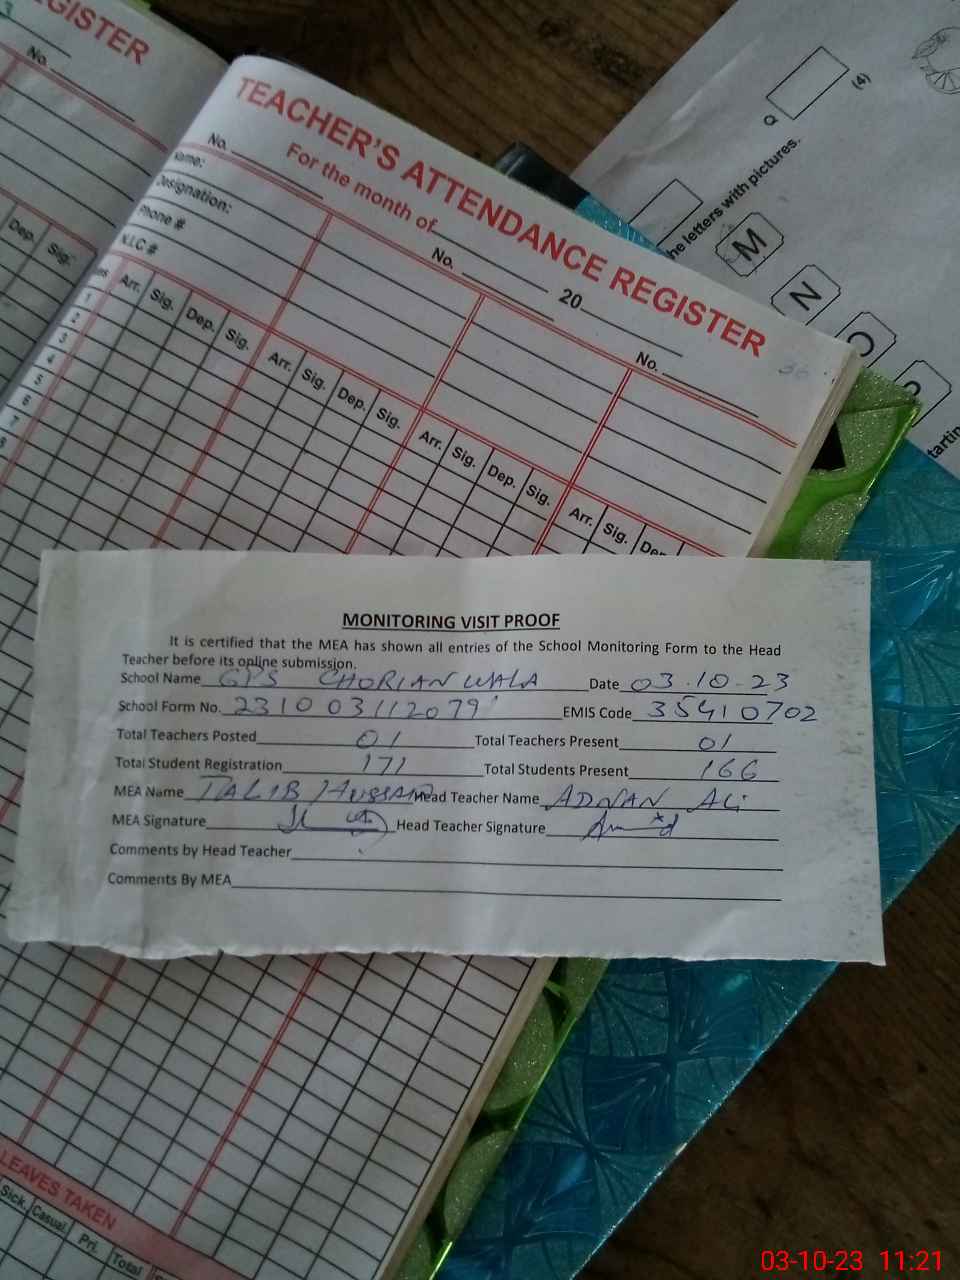 3
REGISTER
No.
Dep. Sig.
TEACHER'S ATTENDANCE REGISTER
For the month of 20
No. No. No.
Name:
Designation:
Phone #
N.I.C #
Arr. Sig. Dep. Sig. Arr. Sig. Dep. Sig. Arr. Sig. Dep. Sig. Arr. Sig. Dep.
1
2
3
4
5
6
7
8
36
Q (4)
he letters with pictures.
M
N
O
P
tartin
MONITORING VISIT PROOF
It is certified that the MEA has shown all entries of the School Monitoring Form to the Head
Teacher before its online submission.
School Name GPS CHORIAN WALA Date 03.10.23
School Form No. 231003112079 EMIS Code 35410702
Total Teachers Posted 01 Total Teachers Present 01
Total Student Registration 171 Total Students Present 166
MEA Name TALIB HUSSAIN Head Teacher Name ADNAN ALi
MEA Signature Head Teacher Signature
Comments by Head Teacher
Comments By MEA
LEAVES TAKEN
Sick. Casual. Pri. Total
03-10-23 11:21